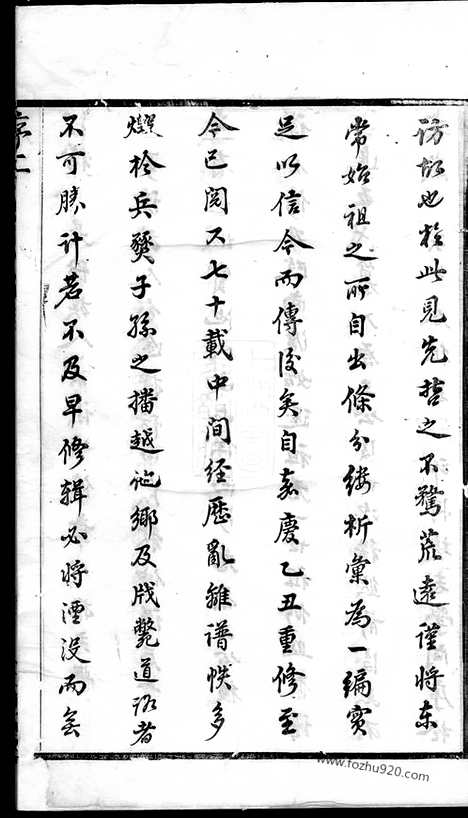 訪故也於此見先哲之不騖荒遠謹將東
常始祖之所自出條分縷析彙為一編實
足以信今而傳後矣自嘉慶乙丑重修至
今已閱六七十載中間經歷亂離譜帙多
燬於兵燹子孫之播越他鄉及戕斃道路者
不可勝計若不及早修輯必將湮沒而無
序二
www.fozhu920.com